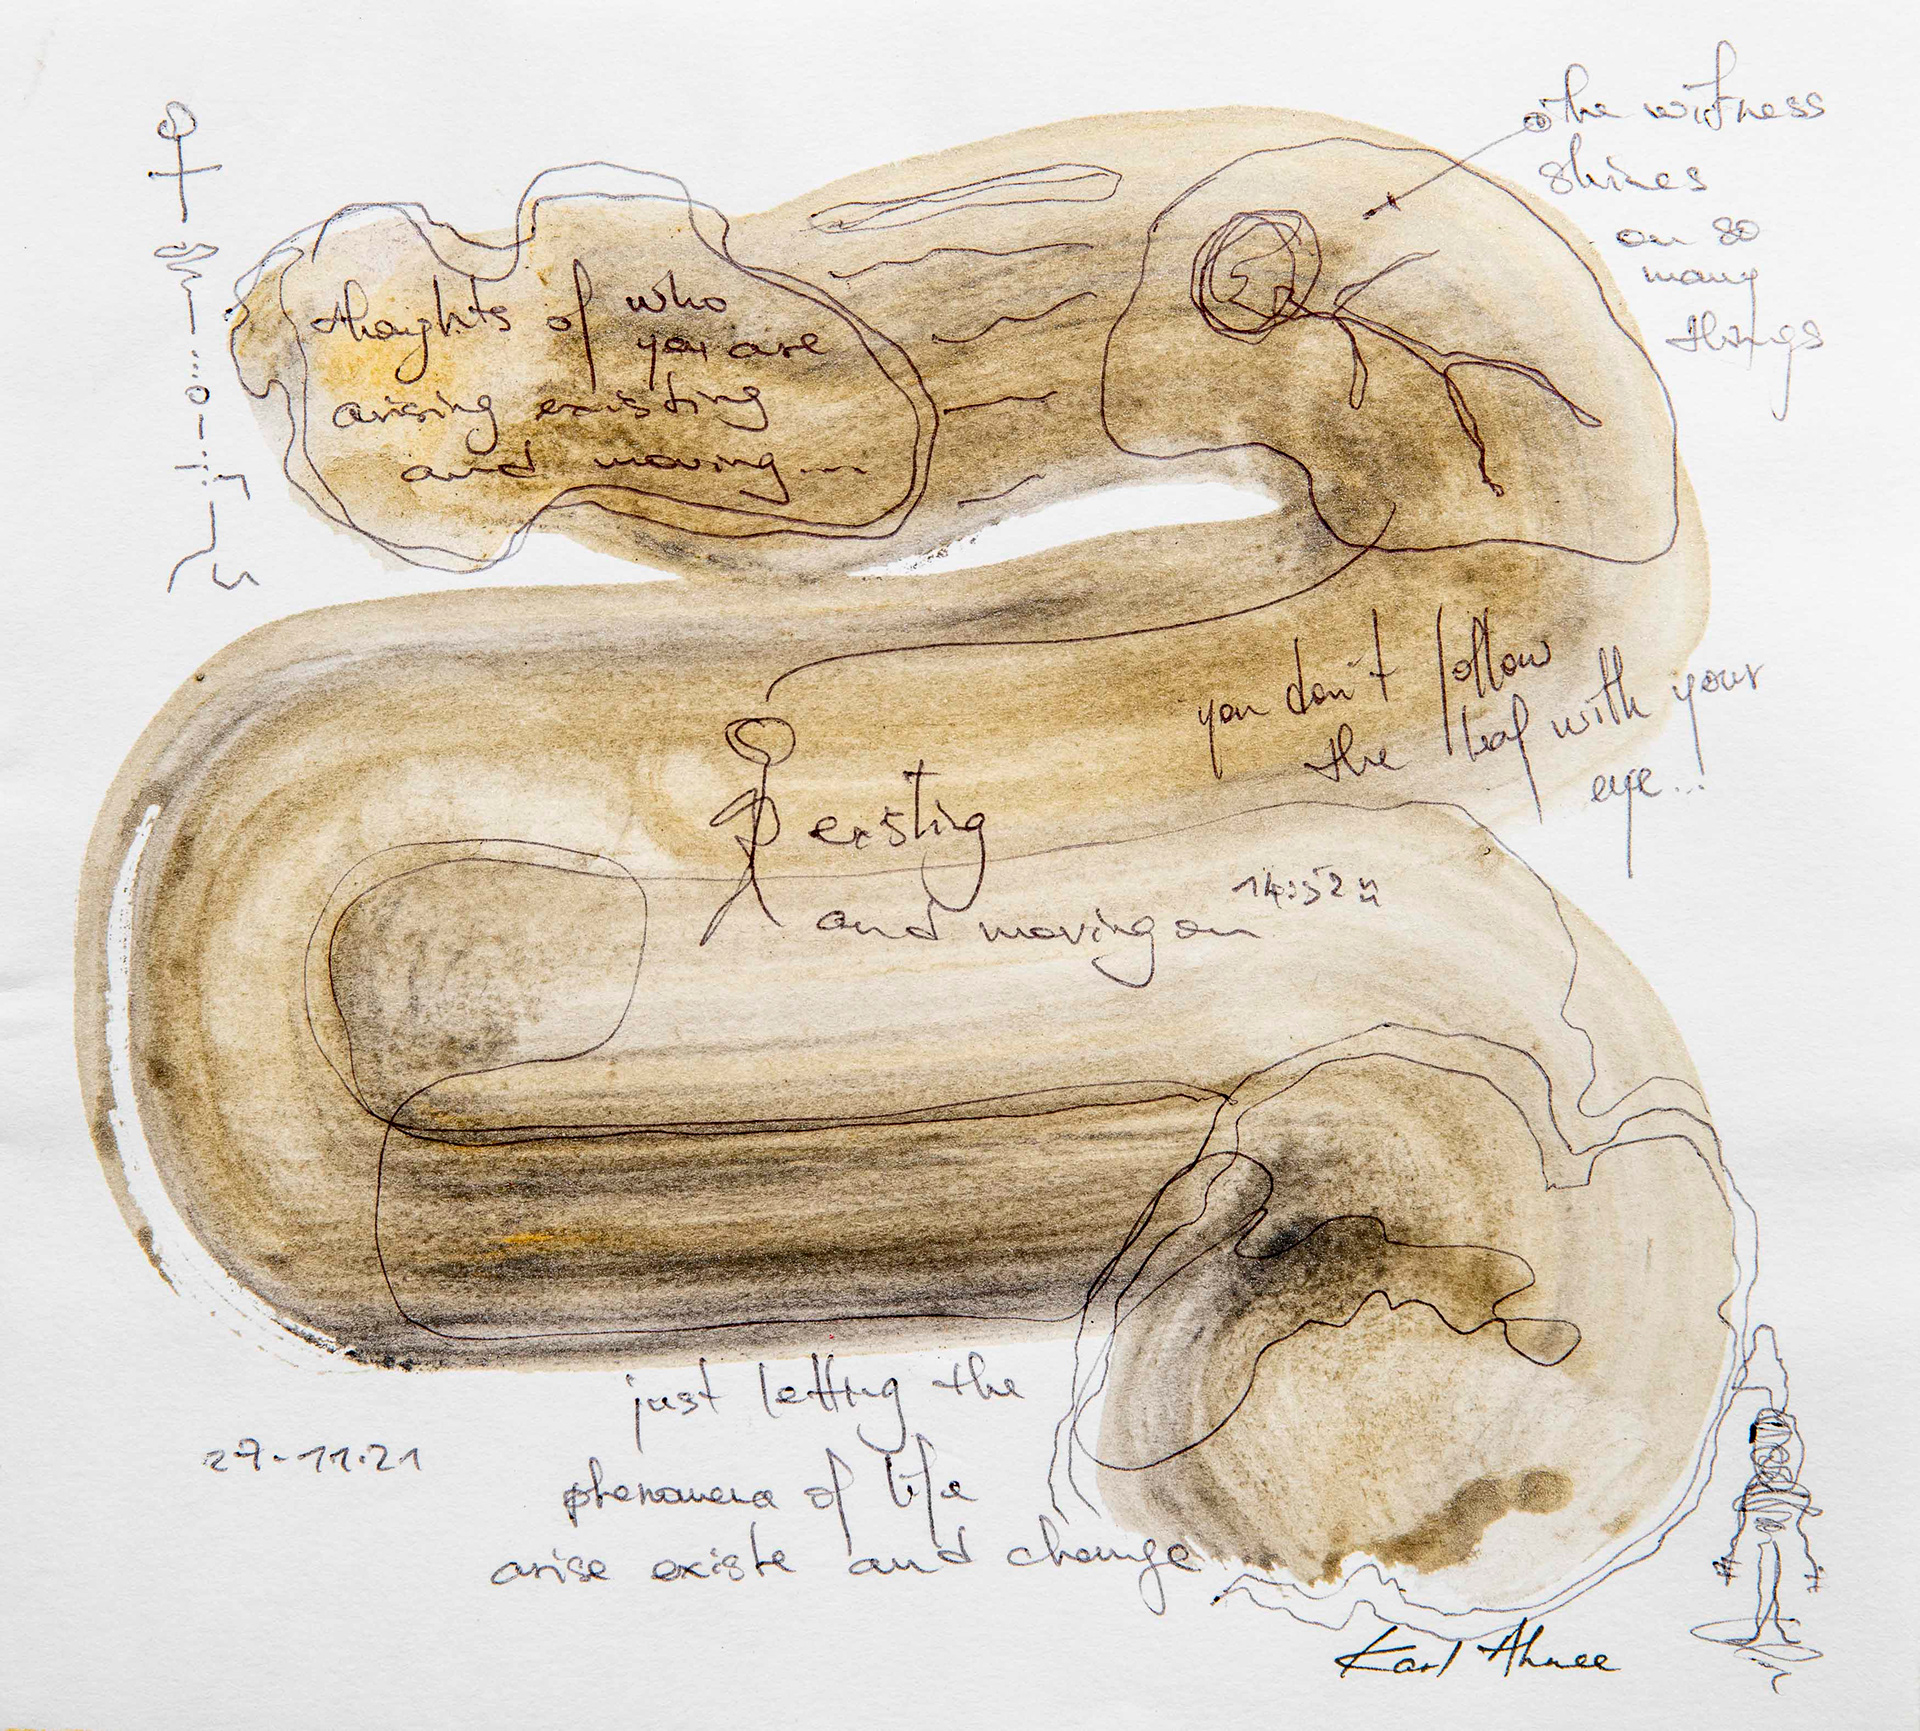 the witness
shines
on so
many
things
thoughts of who
you are
arising existing
and moving...
you don't follow
the leaf with your
eye...
existing
and moving on
14:52
just letting the
phenomena of life
arise existe and change
29-11.21
Karl Ahnee